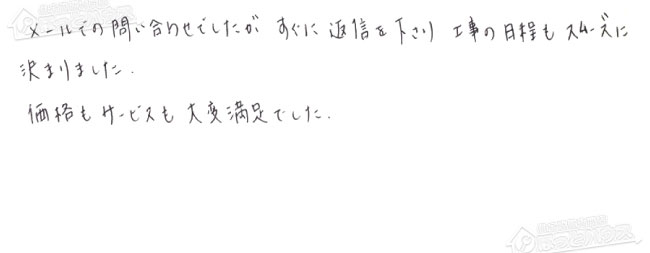 メールでの問い合わせでしたが すぐに 返信を下さり 工事の日程も スムーズに
決まりました.
価格も サービスも 大変満足でした.